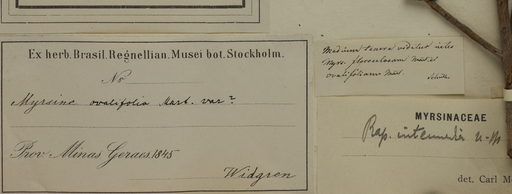 Ex herb. Brasil. Regnellian. Musei bot. Stockholm.
No
Myrsine ovalifolia Mart. var?
Prov. Minas Geraes, 1845
Widgren
Medium tenere videtur inter
Myrs. floccosam Mart. et
ovalifoliam Mart.
MYRSINACEAE
Rap. intermedia
det. Carl M